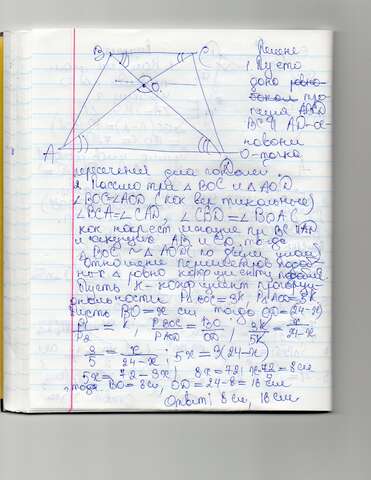 B
C
O
A
D
Решение
1. Пусто
дана равно-
боком тра
пеция ABCD
BC и AD-
O-точка
пересечения диагоналей.
2. Рассмотри △ BOC и △ AOD
∠BOC=∠AOD (как вертикальные)
∠BCA=∠CAD, ∠CBD=∠BDA (
как накрест лежащие при BC||AD
и секущих AB и CD, тогда
△ BOC ~ △ AOD (по двум углам)
Отношение периметров подоб-
ных △ равно коэффициенту подобия.
Пусть K-коэффициент пропорци-
ональности P BOC=3K, P AOD=5K
Пусть BO=x см тогда OD=(24-x)
P1/P2 = K, P BOC/P AOD = BO/OD, 3K/5K = x/24-x
3/5 = x/24-x; 5x=3(24-x)
5x=72-3x; 8x=72; x=72/8=8см
тогда BO=8см, OD=24-8=16см
Ответ: 8 см, 16 см